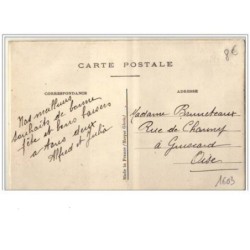 8€
CARTE POSTALE
CORRESPONDANCE
Nos meilleurs
souhaits de bonne
fête et bons baisers
à tous deux
Alfred et Julia
Made in France
Madame Benneteaux
Rue de Chauny
à Guiscard
Oise
1603